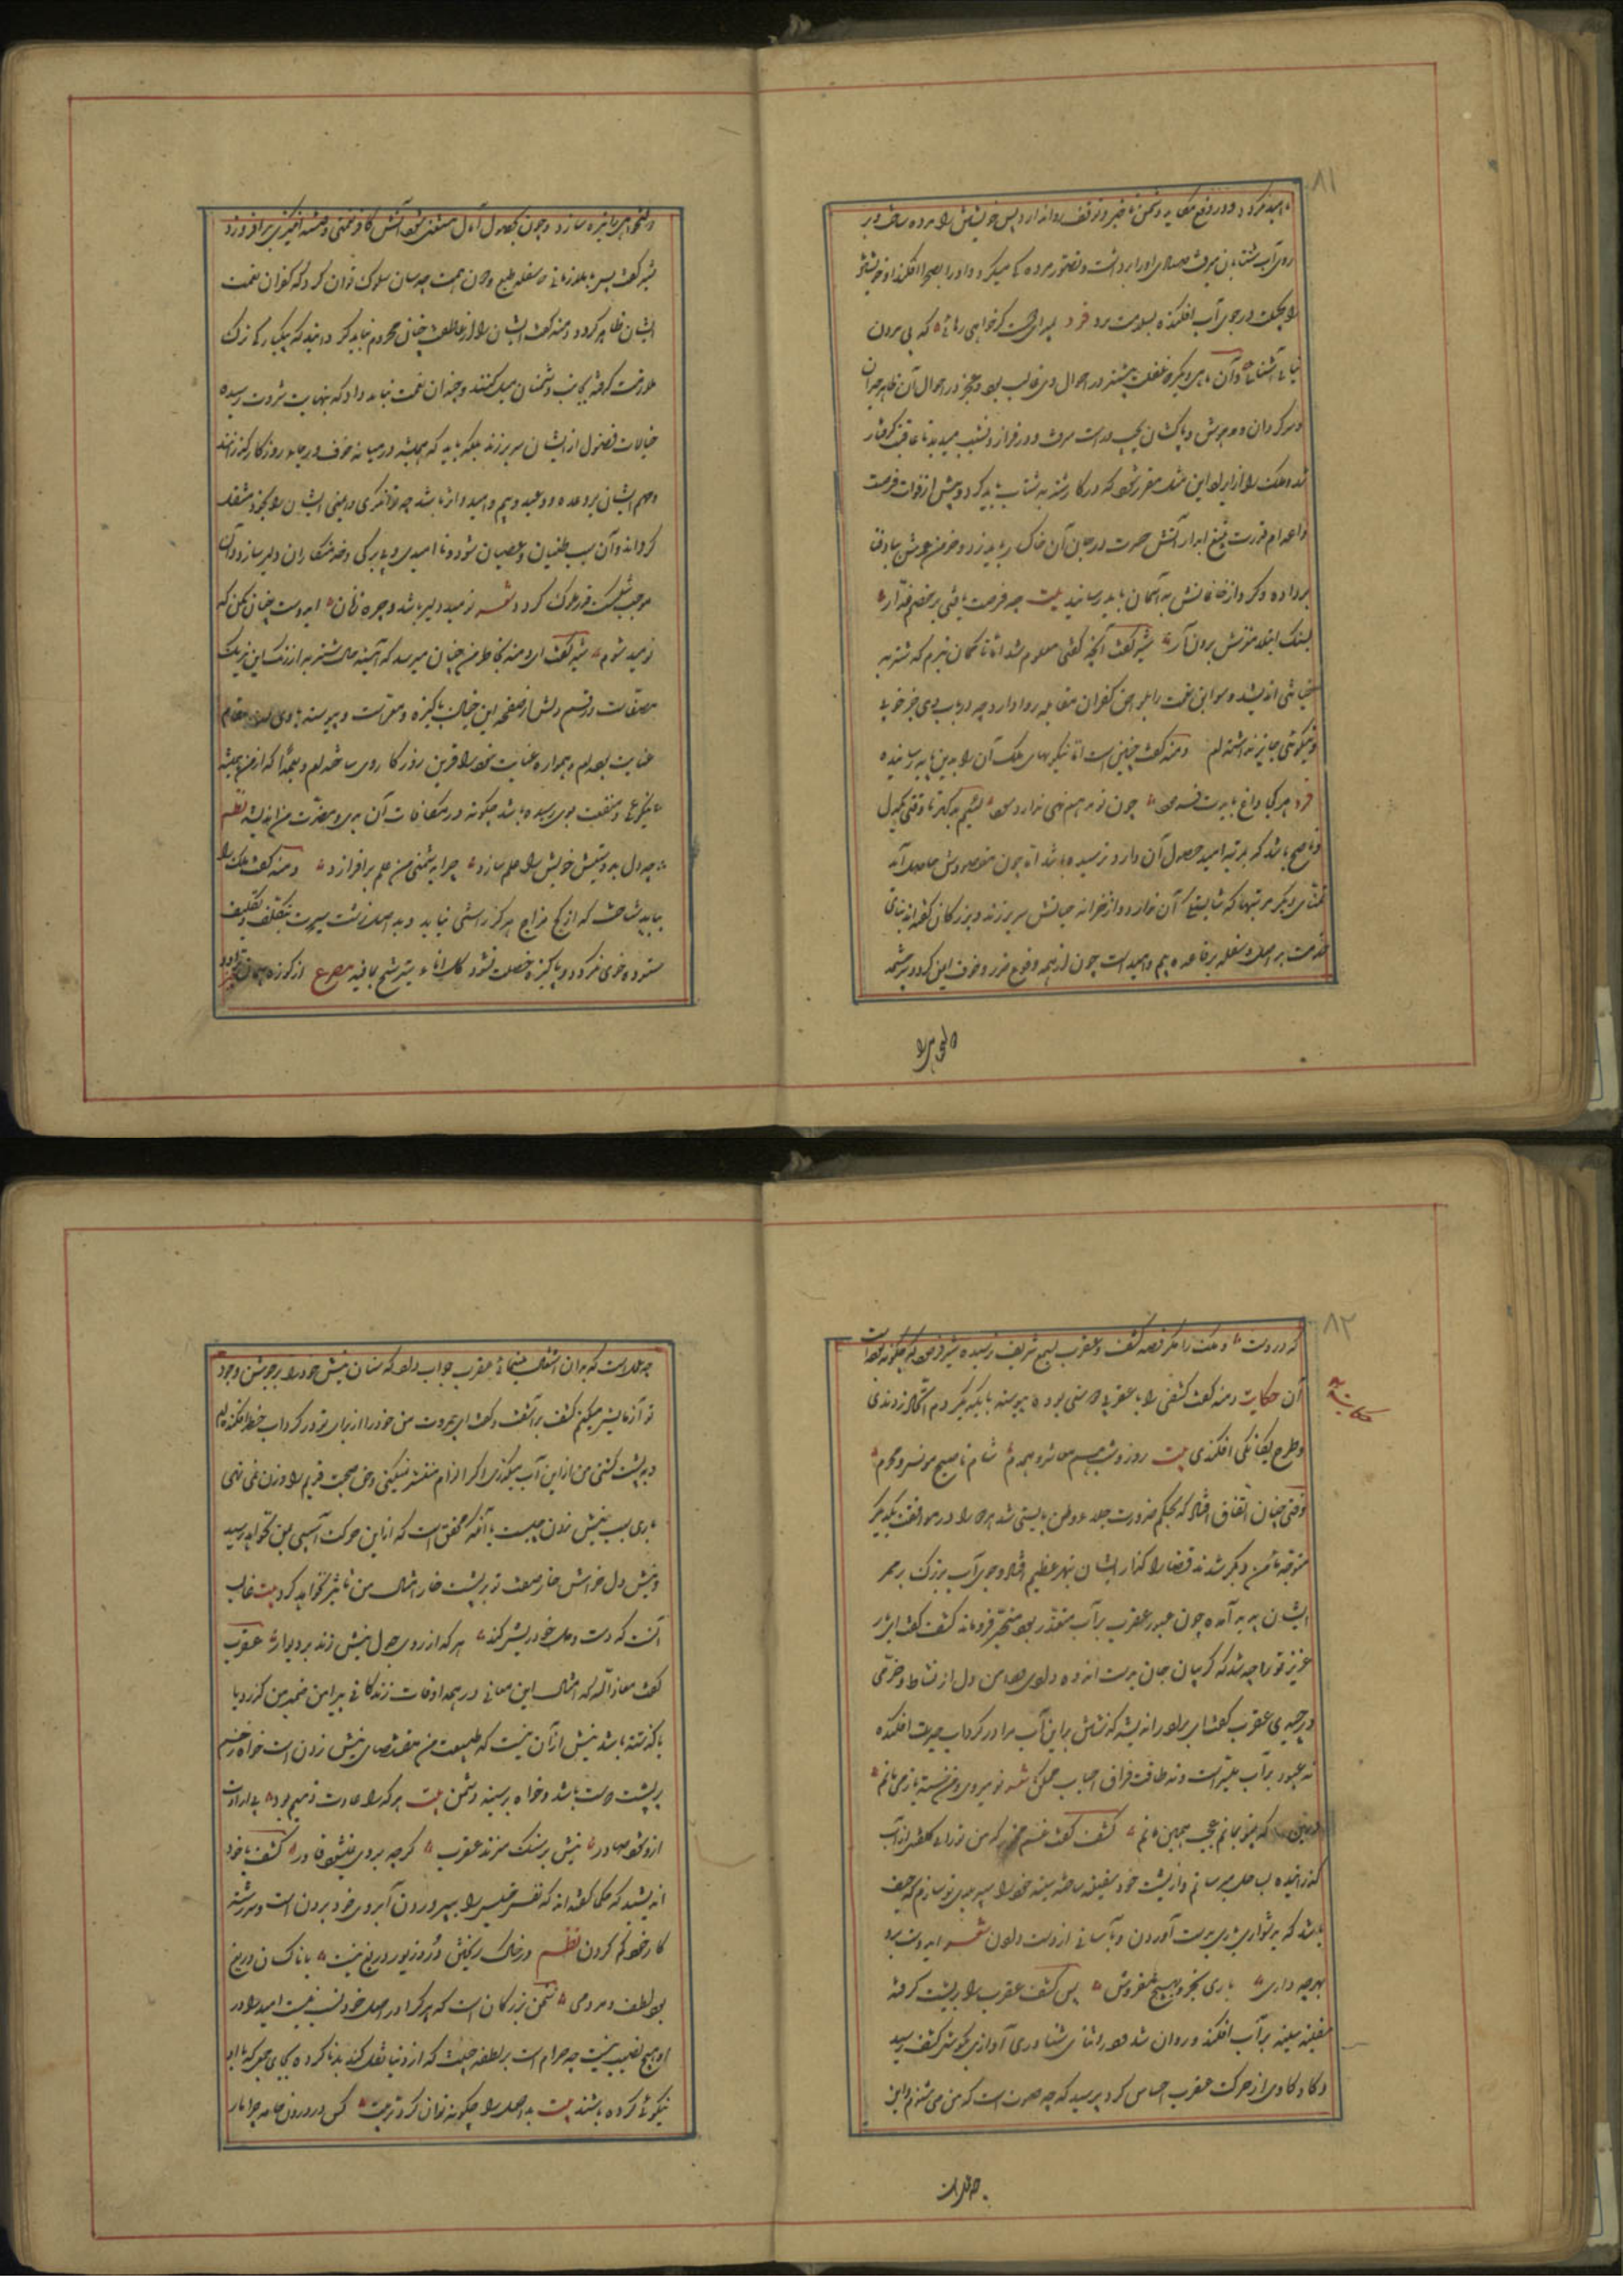 ۸۱
نا امید نگردد و در دفع مکاید دشمن تاخیر و توقف روا ندارد پس خویشتن را مرده ساخت و بر
روی آب ستان میرفت صیاد او را برداشت و تصور مرده کی میکرد و او را بصحرا افکند او خویشتن
را بحیلت در جوی آب افکنده بسلامت برد فرد بمیر ای دوست گر خواهی رهائی که بی مردن
نیابی آشنائی و آن ماهی دیگر که غفلت بیشتر در احوال وی غالب بود و عجز در احوال آن ظاهر حیران
و سرگردان و مدهوش و پای کشان چپ و راست میرفت و در فراز و نشیب میدوید تا عاقبت گرفتار
شد و ملک را از ایراد این مثل مقرر شود که در کار شنزبه شتاب باید کرد و پیش از فوات فرصت
و اعدام قدرت بتیغ آبدار آتش حسرت در جان آن خاکسار باید زد و خرمن عمرش بباد فنا
برداده و گرد از خانمانش به آسمان باید رسانید بیت چه فرصت یافتی بر خصم غدار
بسنک ابتلا مغزش برون آر شیر گفت آنچه گفتی معلوم شد اما گمان نبرم که شنزبه
خیانتی اندیشد و سوابق نعمت را بلواحق کفران مقابله روا دارد چه در باب وی جز خوبی
و نیکوئی جایز نداشته‌ام دمنه گفت چنین است اما نیکوئیهای ملک آن را بدین پایه رسانیده
فرد هر کجا داغ بایدت فرمود چون تو مرهم نهی ندارد سود لئیم بدگهر تا وقتی یکدل
و ناصح باشد که بمرتبه امید حصول آن دارد نرسیده باشد اما چون مقصودش حاصل آید
تمنای دیگر مرتبها که شایستگی آن ندارد از خزانه خیالش سر برزند و بزرگان گفته‌اند بنای
خدمت بد اصل و سفله بر قاعده بیم و امید است چون از بیم وقوع ضرر و خوف ایمن گردد سرچشمه

دولتخواهی را تیره سازد و چون بحصول آمال مستغنی شود آتش کافر نعمتی و فتنه انگیزی برافروزد
شیر گفت پس با ملازمانی که سفله طبع و دون همت چه سان سلوک توان کرد که کفران نعمت
ایشان ظاهر نگردد دمنه گفت ایشان را از عاطفت چنان محروم نباید گردانید که بیکبارگی ترک
ملازمت گرفته بجانب دشمنان میل کنند و چندان نعمت نباید داد که بنهایت ثروت رسیده
خیالات فضول از ایشان سر برزند بلکه باید که همیشه در میانه خوف و رجا روزگار گذرانند
و مهم ایشان بر وعده و وعید و بیم و امید دایر باشد چه توانگری و ایمنی ایشان را بخود مشغول
گرداند و آن سبب طغیان و عصیان شود و نا امیدی و بی برگی خدمتکاران را دلیر سازد و آن
موجب شکست قدر ملوک گردد شعر نومید دلیر باشد و چیره زبان ای دوست چنان مکن که
نومید شوم شیر گفت ای دمنه بخاطر من چنان میرسد که آئینه حال شنزبه از زنگ این تزریک
مصفا است و رقم دلش از صفحه این خیال پاکیزه و معرا است و پیوسته با وی در مقام
عنایت بوده‌ام و همواره عنایت خود را قرین روزگار وی ساخته‌ام و هرگاه که از من همیشه
نیکوئیها و منفعت بوی رسیده باشد چگونه در مکافات آن بدی و مضرت من اندیشه نظم
چه دل به دوستیش خویش را علم سازد چرا بدشمنی من علم برافرازد دمنه گفت ملک را
بباید شناخت که از کج مزاج هرگز راستی نیاید و بد اصل زشت سیرت بتکلف و تکلیف
ستوده خوی نگردد و پاکیزه خصلت نشود کل اناء یترشح بما فیه مصرع از کوزه همان برون تراود

۸۲
که دروست و ملک را مگر قصه کشف و عقرب بسمع شریف نرسیده شیر فرمود که چگونه بوده است
آن حکایت دمنه گفت کشفی را با عقربی دوستی بوده پیوسته با یکدیگر دم اتحاد زدندی
حکایت
و طرح یگانگی افکندی بیت روز و شب بهم معاشر و همدم شام تا صبح مونس و محرم
وقتی چنان اتفاق افتاد که بحکم ضرورت جلاء وطن بایستی شد هر دو در مرافقت یکدیگر
متوجه مامن دیگر شدند قضا را گذار ایشان بنهر عظیم افتاد و جوی آب بزرگ بر ممر
ایشان پدید آمده چون عبور عقرب بر آب متعذر بود متحیر فروماند کشف گفت ای یار
عزیز تو را چه شد که گریبان جان بدست اندوه دادی و دامن دل از نشاط و خرمی
درچیدی عقرب گفت ای برادر اندیشه گذشتن براین آب مرا در گرداب حیرت افکنده
نه عبور بر آب میسر است و نه طاقت فراق احباب ممکن شعر تو میروی و من خسته باز می مانم
درین که بی تو بمانم عجب همین مانم کشف گفت غم مخور که من تو را بی کلفت از آب
گذرانیده بساحل میرسانم و از پشت خود سفینه ساخته سینه خود را سپر بلای تو سازم که حیف
باشد که بدشواری یاری بدست آوردن و بآسانی از دست دادن شعر ای دوست برو
بهر چه داری یاری بخر و بهیچ مفروش پس کشف عقرب را بر پشت گرفته
سفینه سینه بر آب افکند و روان شد در اثنای شناوری آوازی بگوش کشف رسید
و کاوکاوی از حرکت عقرب احساس کرد پرسید که چه صوت است که من می شنوم و این

چه عملست که بدان اشتغال مینمائی عقرب جواب داد که سنان نیش خود را بر جوشن وجود
تو آزمایش میکنم کشف برآشفت و گفت ای بیمروت من خود را از برای تو در گرداب خطر افکنده‌ام
و به پشت کشتی من از این آب میگذری اگر التزام منتش نمیکنی و حق صحبت قدیم را وزن نمی نهی
باری سبب نیش زدن چیست با آنکه محقق است که از این حرکت آسیبی بمن نخواهد رسید
و نیش دل خراش خار صفت تو بر پشت خارا مثال من تاثیر نخواهد کرد بیت غالب
آنست که دست و دل خود ریش کند هر که از روی جدل نیش زند بر دیوار عقرب
گفت معاذ الله که امثال این معانی در همه اوقات زندگانی پیرامن ضمیر من گذرد یا
یا گذشته باشد بیش از آن نیست که طبیعت من مقتضای نیش زدن است خواه زخم
بر پشت دوست باشد و خواه بر سینه دشمن بیت هر که را عادت ذمیم بود بی ارادت
ازو شود صادر نیش بر سنگ میزند عقرب گرچه بر وی نمیشود قادر کشف با خود
اندیشید که حکما گفته‌اند که نفس خسیس را پروردن آبروی خود بردن است و سررشته
کار خود گم کردن نظم در خاک ریختن در و زیور دریغ نیست با ناکسان دریغ
بود لطف و مردمی سخن بزرگان است که هر که را در اصل خود نسب نیست امید را در
او هیچ نصیب نیست چه حرام است بر نطفه خبیث که از دنیا نقل کند بد ناکرده بجای جمعی که با او
نیکوئی کرده باشند بیت بد اصل را چگونه توان کرد تربیت کس در درون جامه چرا مار